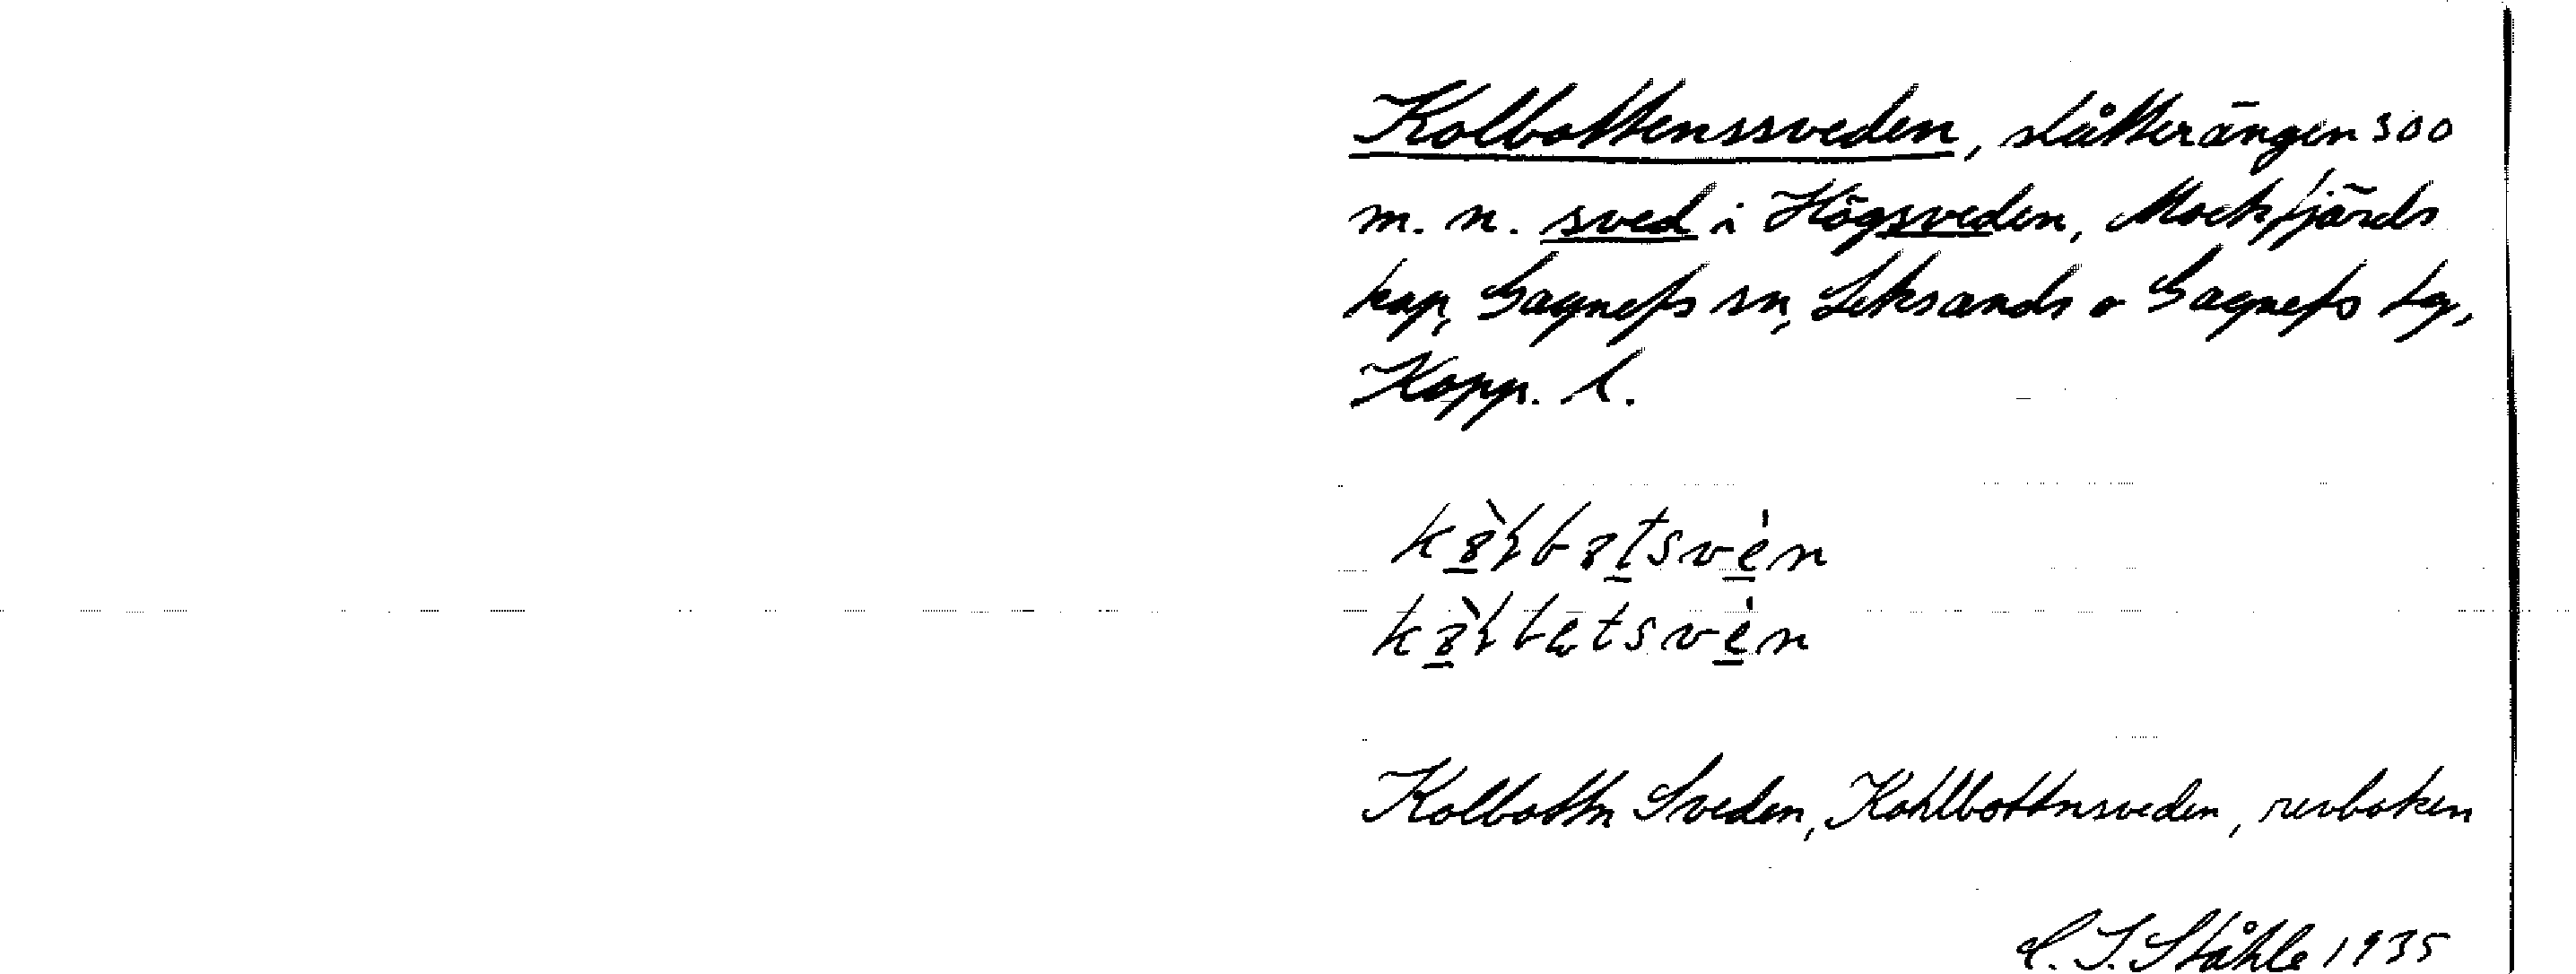 Kolbottenssveden, slåtterängen 300
m. n. sved i Högsveden, Mockfjärds
kap, Gagnefs sn, Leksands o Gagnefs tg,
Kopp. l.
Kolbottn Sveden, Kohlbottnsveden, revboken
C. I. Ståhle 1935